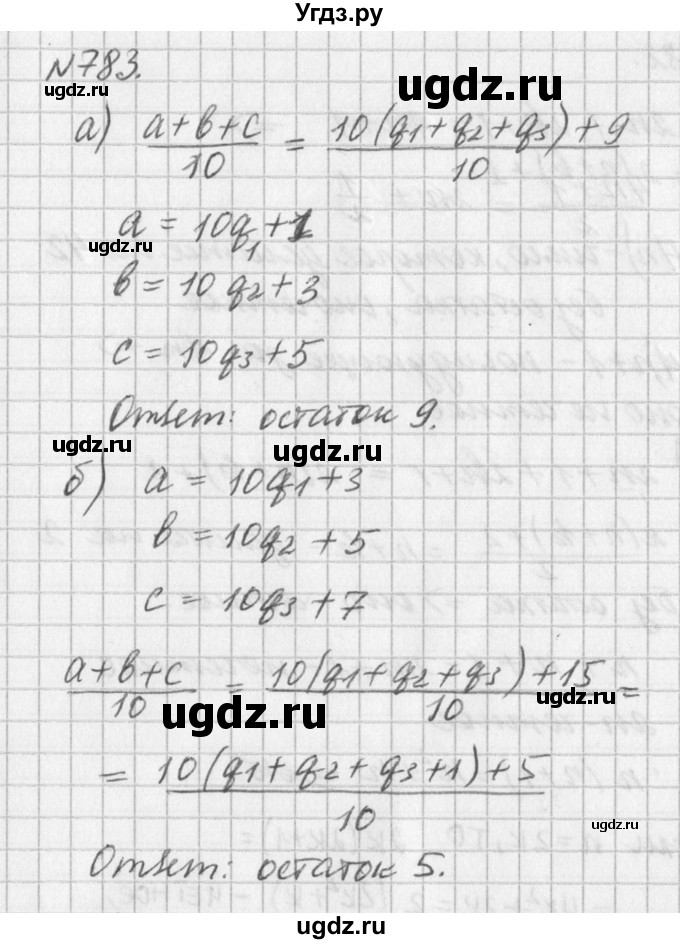 Угдз.ру
N783.
ugdz.ru
ugdz.ru
а) (a+b+c)/10 = (10(q1+q2+q3)+9)/10
a = 10q1+1
ugdz.ru
b = 10q2+3
c = 10q3+5
Ответ: остаток 9.
ugdz.ru
ugdz.ru
б) a = 10q1+3
b = 10q2+5
c = 10q3+7
(a+b+c)/10 = (10(q1+q2+q3)+15)/10 =
ugdz.ru
= (10(q1+q2+q3+1)+5)/10
ugdz.ru
Ответ: остаток 5.
ugdz.ru